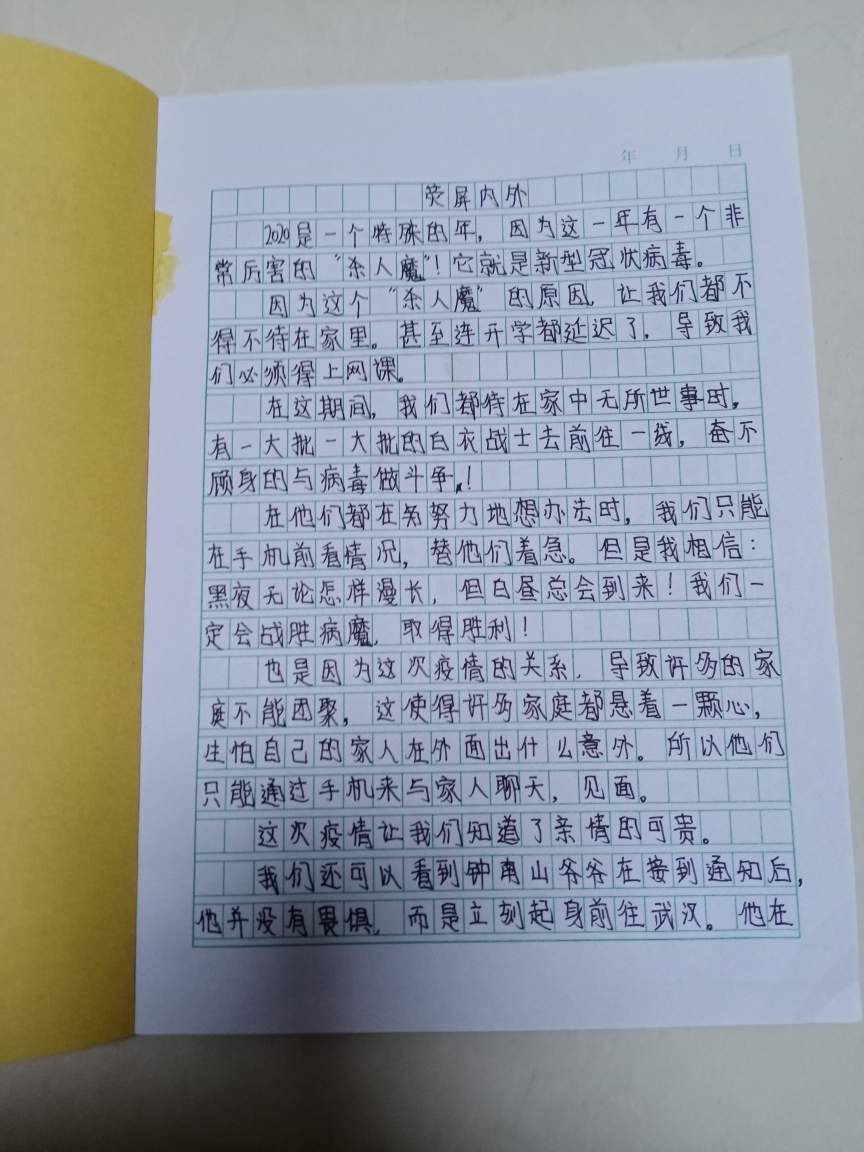 年 月 日
荧屏内外
2020是一个特殊的年，因为这一年有一个非
常厉害的“杀人魔”！它就是新型冠状病毒。
因为这个“杀人魔”的原因，让我们都不
得不待在家里。甚至连开学都延迟了，导致我
们必须得上网课。
在这期间，我们都待在家中无所世事时，
有一大批一大批的白衣战士去前往一线，奋不
顾身的与病毒做斗争！
在他们都在努力地想办法时，我们只能
在手机前看情况，替他们着急。但是我相信：
黑夜无论怎样漫长，但白昼总会到来！我们一
定会战胜病魔，取得胜利！
也是因为这次疫情的关系，导致许多的家
庭不能团聚，这使得许多家庭都悬着一颗心，
生怕自己的家人在外面出什么意外。所以他们
只能通过手机来与家人聊天，见面。
这次疫情让我们知道了亲情的可贵。
我们还可以看到钟南山爷爷在接到通知后，
他并没有畏惧，而是立刻起身前往武汉。他在